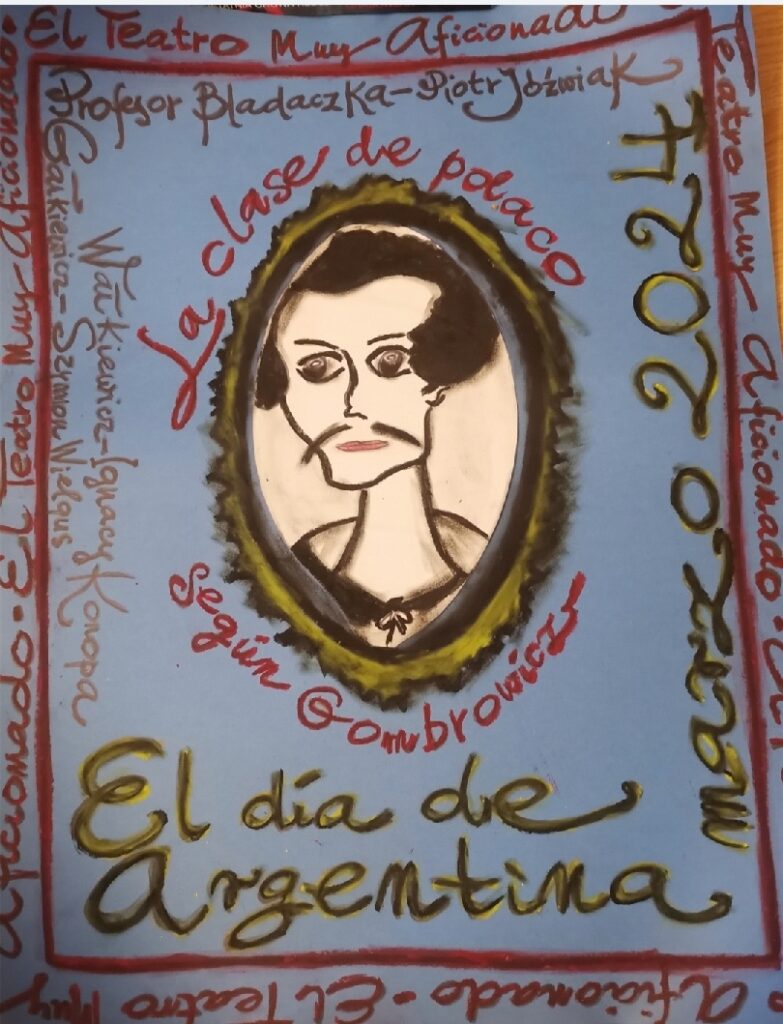 El Teatro Muy Aficionado
Teatro Muy Aficionado - El
Aficionado - El Teatro Muy
Aficionado - El Teatro Muy Aficionado -
Profesor Bladaczka - Piotr Jóźwiak
Gałkiewicz - Szymon Wielgus
Wałkiewicz - Ignacy Konopa
La clase de polaco
según Gombrowicz
El día de
Argentina
marzo 2024